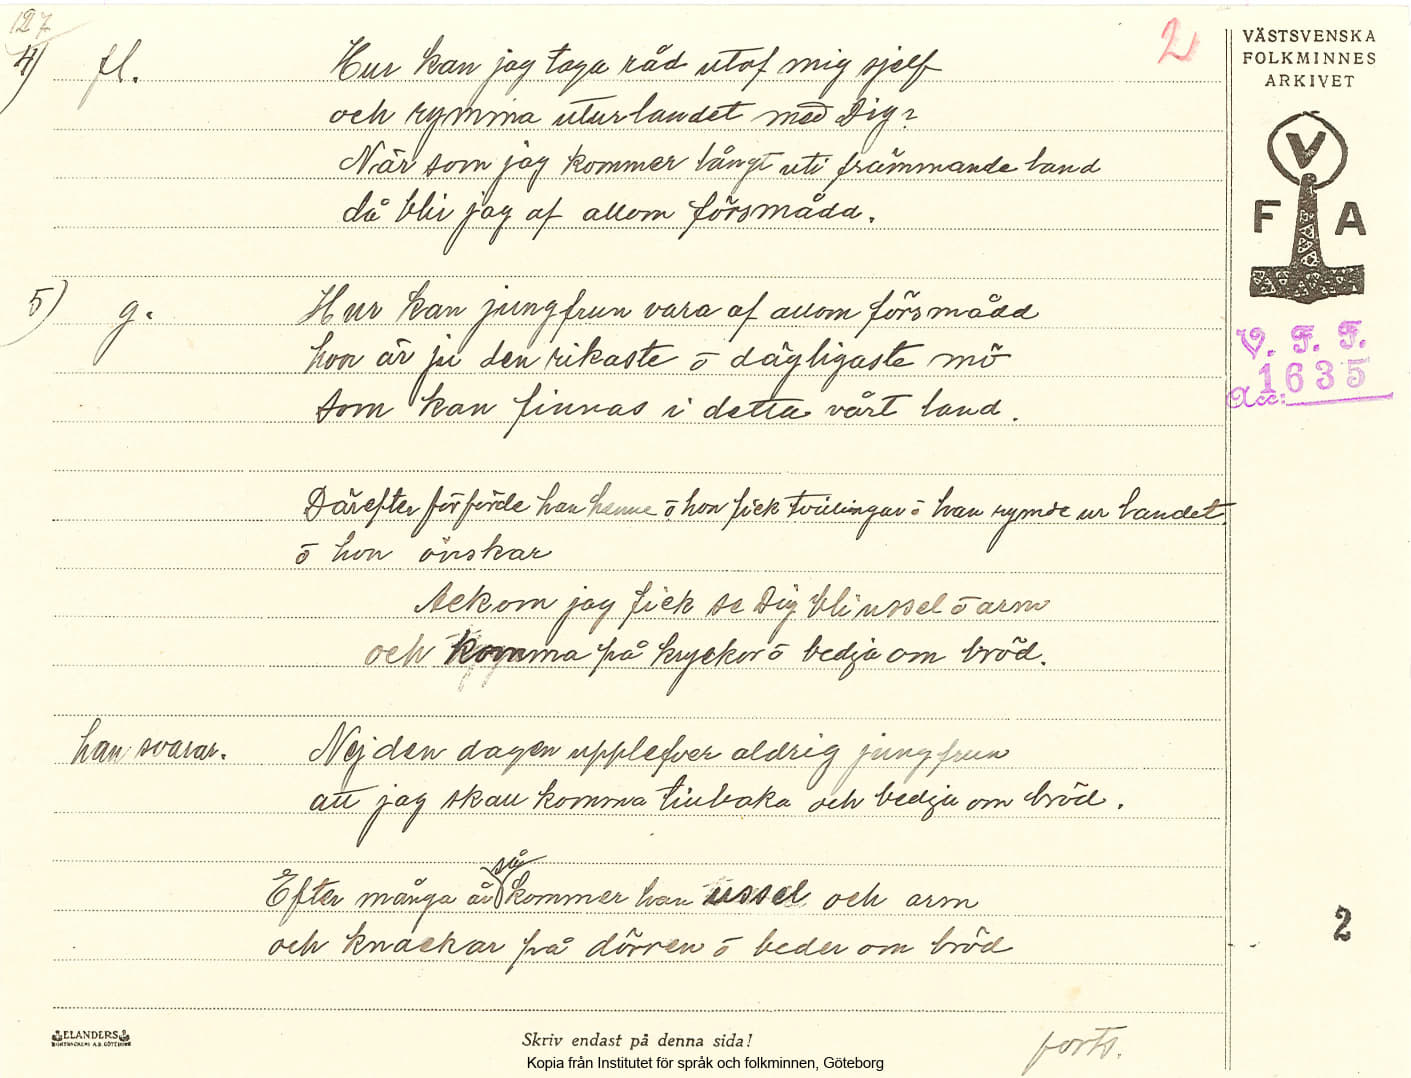 127
2
VÄSTSVENSKA
FOLKMINNES
ARKIVET
V
F A
V. F. F.
Acc: 1635
4) fl. Hur kan jag taga råd utaf mig sjelf
och rymma utur landet med Dig?
När som jag kommer långt uti främmande land
då blir jag af allom försmådd.
5) g. Hur kan jungfrun vara af allom försmådd
hon är ju den rikaste ō dägligaste mö
som kan finnas i detta vårt land.
Därefter förförde han henne ō hon fick tvillingar ō han rymde ur landet.
ō hon önskar
Ack om jag fick se Dig bli ussel ō arm
och komma på kryckor ō bedja om bröd.
han svarar. Nej den dagen upplefver aldrig jungfrun
att jag skall komma tillbaka och bedja om bröd.
så
Efter många år kommer han ussel och arm
och knackar på dörren ō beder om bröd
2
ELANDERS
BOKTRYCKERI A.B. GÖTEBORG
Skriv endast på denna sida!
forts.
Kopia från Institutet för språk och folkminnen, Göteborg